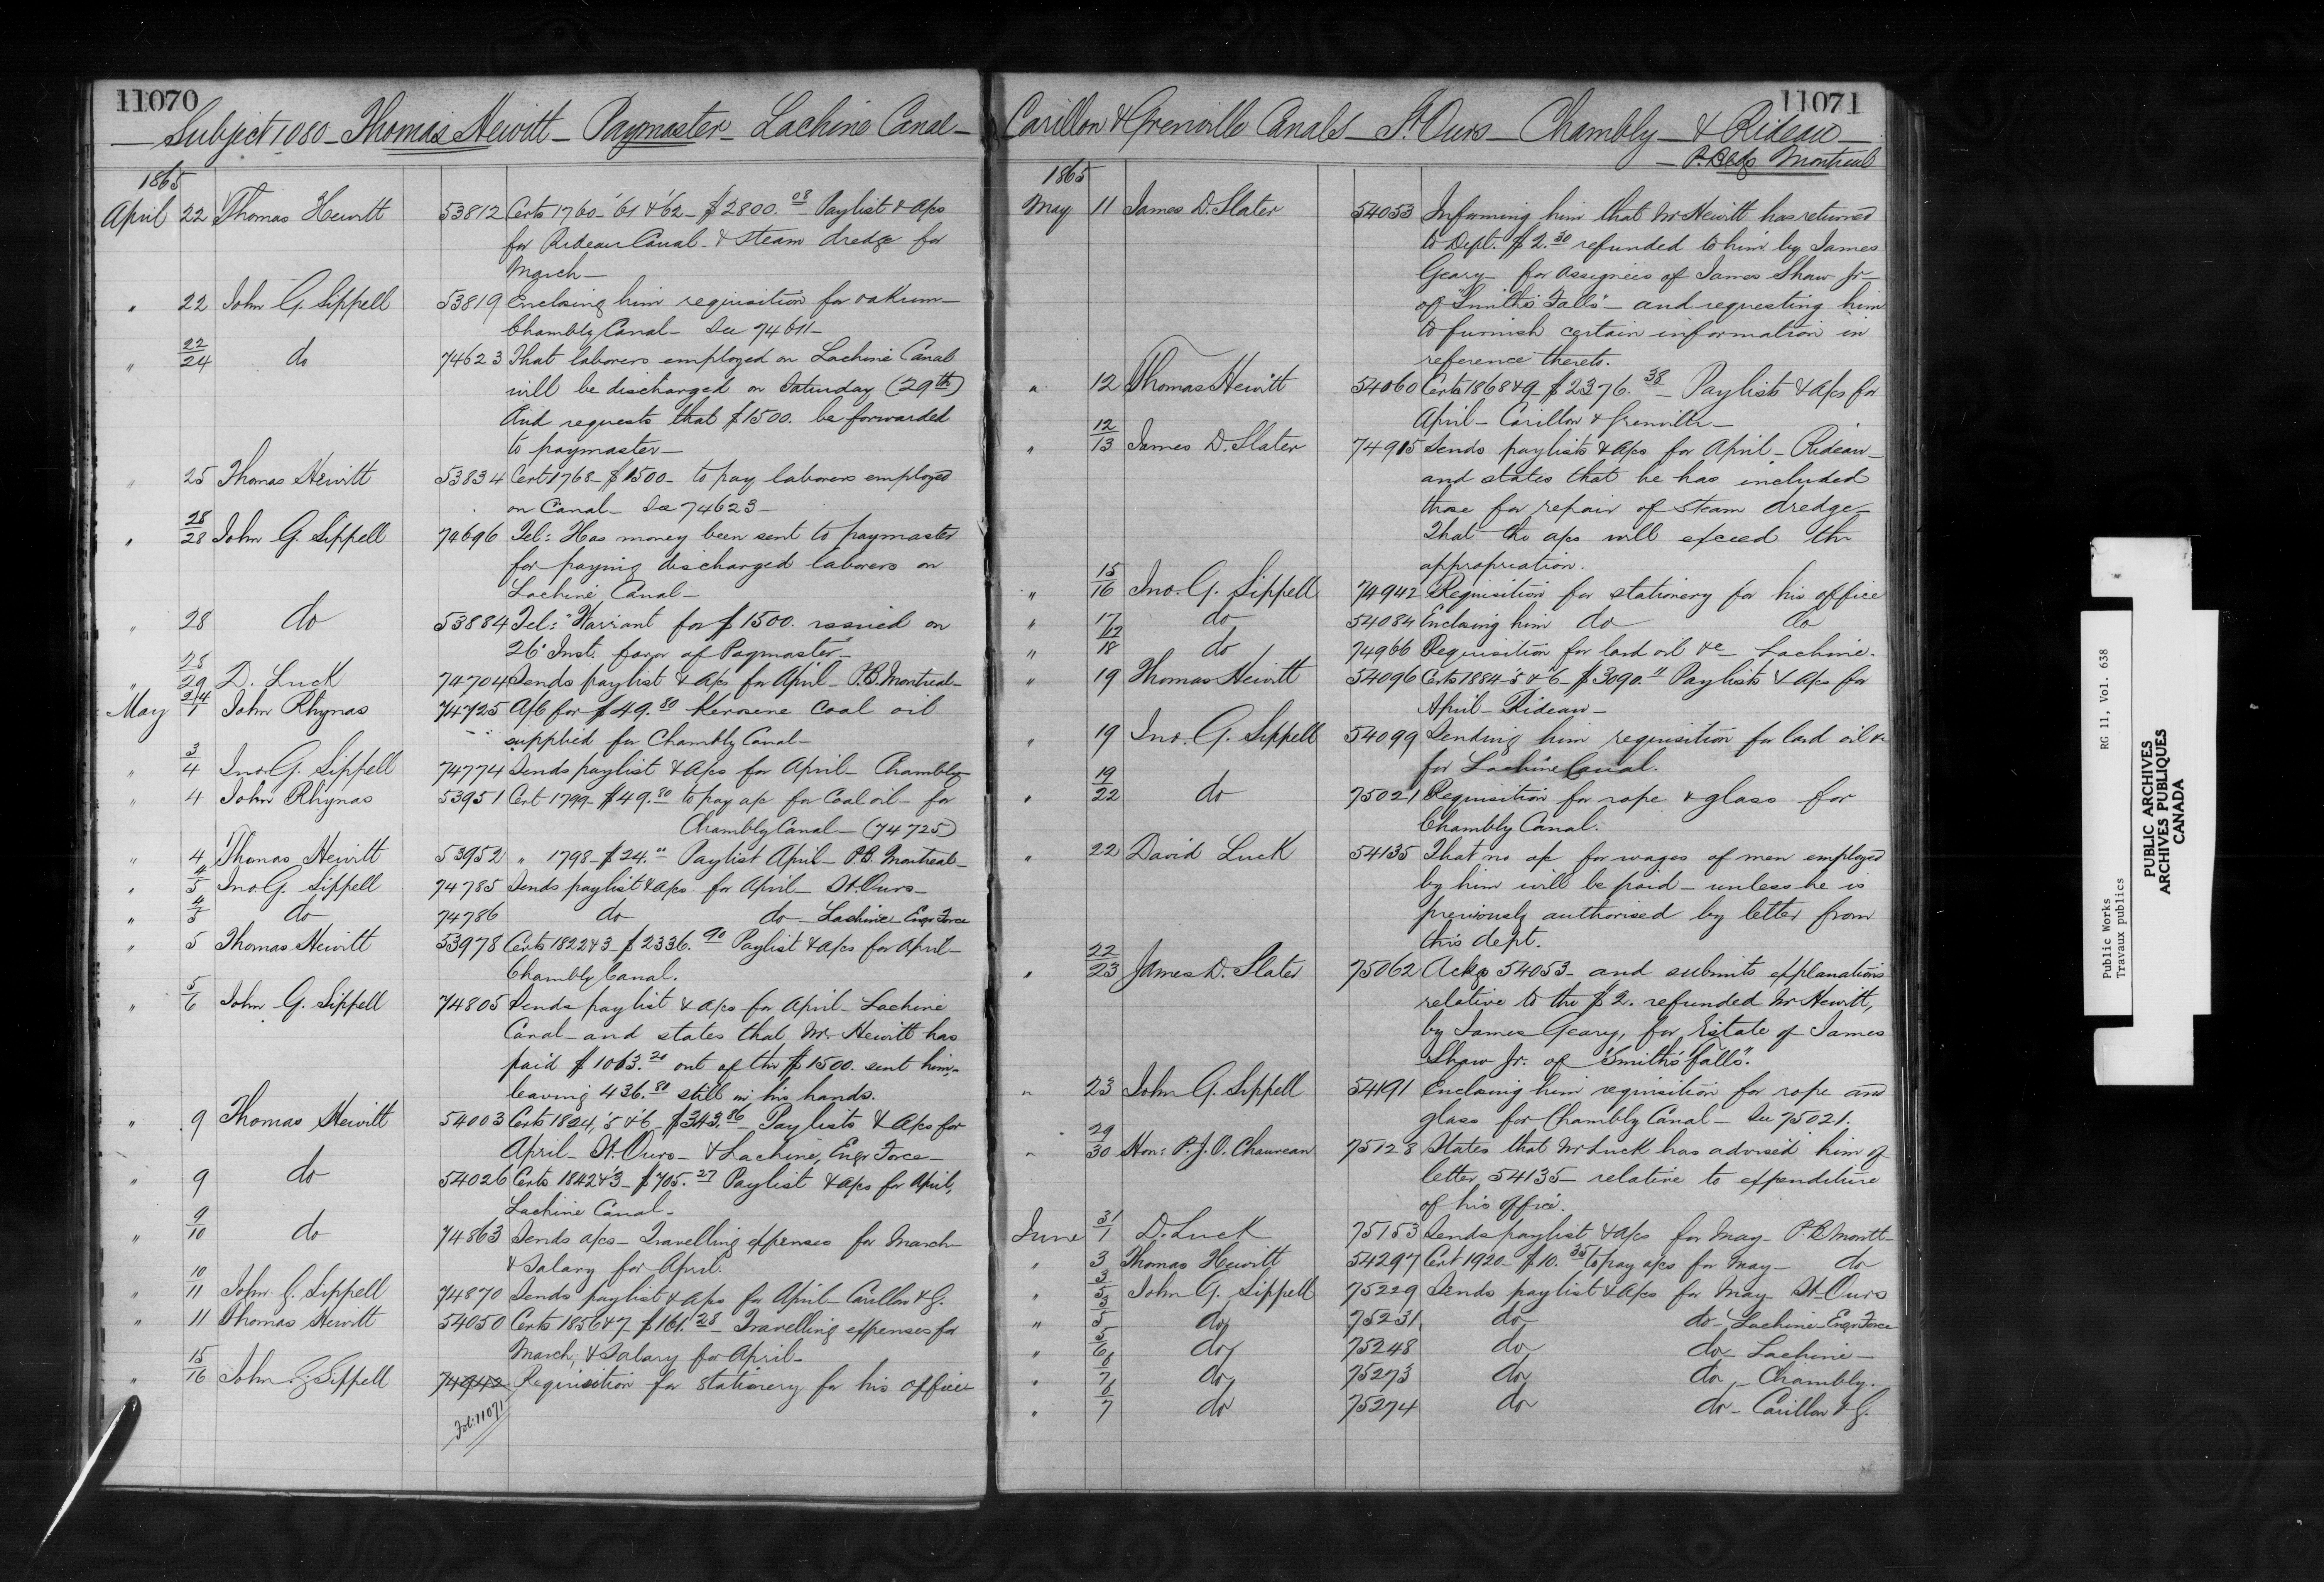 11070
Subject 1080 - Thomas Hewitt - Paymaster - Lachine Canal -
1865
April 22 Thomas Hewitt 53812 Certs 1760 - '61 & '62 - $2800.08 Paylist & a/cs
for Rideau Canal - & steam dredge for
March -
" 22 John G. Sippell 53819 Enclosing him requisition for oakum -
Chambly Canal - See 74611 -
" 22/24 do 74623 That laborers employed on Lachine Canal
will be discharged on Saturday (29th)
And requests that $1500. be forwarded
to paymaster -
" 25 Thomas Hewitt 53834 Cert 1768 - $1500 - to pay laborers employed
on Canal - See 74623 -
" 28/28 John G. Sippell 74696 Tel: Has money been sent to paymaster
for paying discharged laborers on
Lachine Canal -
" 28 do 53884 Tel: Warrant for $1500. issued on
26 Inst. favor of Paymaster -
" 28/29 D. Luck 74704 Sends paylist & a/cs for April - P.B. Montreal -
May 24/1 John Rhynas 74725 A/c for $49.80 Kerosene Coal oil
supplied for Chambly Canal -
" 3/4 Jno. G. Sippell 74774 Sends paylist & a/cs for April - Chambly
" 4 John Rhynas 53951 Cert 1799 - $49.80 to pay a/c for Coal oil - for
Chambly Canal - (74725)
" 4 Thomas Hewitt 53952 " 1798 - $24.00 Paylist April - P.B. Montreal -
" 4/5 Jno G. Sippell 74785 Sends paylist & a/cs for April - St. Ours -
" 4/5 do 74786 do do - Lachine Engr Force
" 5 Thomas Hewitt 53978 Certs 1822 & 3 - $2336.90 Paylist & a/cs for April -
Chambly Canal.
" 5/6 John G. Sippell 74805 Sends paylist & a/cs for April - Lachine
Canal - and states that Mr Hewitt has
paid $1063.20 out of the $1500. sent him -
leaving 436.80 still in his hands.
" 9 Thomas Hewitt 54003 Certs 1824, '5 & '6 - $343.86 - Paylists & a/cs for
April - St. Ours - & Lachine, Engr Force -
" 9 do 54026 Certs 1842 & 3 - $705.27 Paylist & a/cs for April,
Lachine Canal -
" 9/10 do 74863 Sends a/cs - Travelling expenses for March
& Salary for April.
" 10/11 John G. Sippell 74870 Sends paylist & a/cs for April - Carillon & G.
" 11 Thomas Hewitt 54050 Certs 1856 & 7 - $161.28 - Travelling expenses for
March, & Salary for April -
" 15/16 John G Sippell 74942 Requisition for Stationery for his office
Fol: 11071
11071
Carillon & Grenville Canals - St. Ours - Chambly - & Rideau -
- P. Bldgs Montreal
1865
May 11 James D. Slater 54053 Informing him that Mr Hewitt has returned
to Dept. $2.30 refunded to him by James
Geary - for Assignees of James Shaw Jr -
of "Smith's Falls" - and requesting him
to furnish certain information in
reference thereto.
" 12 Thomas Hewitt 54060 Certs 1868 & 9 - $2376.38 - Paylists & a/cs for
April - Carillon & Grenville -
" 12/13 James D. Slater 74915 Sends paylists & a/cs for April - Rideau -
and states that he has included
those for repair of steam dredge -
That the a/cs will exceed the
appropriation.
" 15/16 Jno. G. Sippell 74942 Requisition for stationery for his office
" 17 do 54084 Enclosing him do do
" 17/18 do 74966 Requisition for lard oil &c Lachine.
" 19 Thomas Hewitt 54096 Certs 1884 - 5 & 6 - $3090.11 Paylists & a/cs for
April - Rideau -
" 19 Jno. G. Sippell 54099 Sending him requisition for lard oil &c
for Lachine Canal.
" 19/22 do 75021 Requisition for rope & glass for
Chambly Canal.
" 22 David Luck 54135 That no a/c for wages of men employed
by him will be paid - unless he is
previously authorised by letter from
this dept.
" 22/23 James D. Slater 75062 Ackg 54053 - and submits explanations
relative to the $2. refunded Mr Hewitt,
by James Geary, for Estate of James
Shaw Jr. of "Smith's Falls".
" 23 John G. Sippell 54191 Enclosing him requisition for rope and
glass for Chambly Canal - See 75021.
" 29/30 Hon: P. J. O. Chauveau 75128 States that Mr Luck has advised him of
letter 54135 - relative to expenditure
of his office.
June 31/1 D. Luck 75153 Sends paylist & a/cs for May - P.B Montl -
" 3 Thomas Hewitt 54297 Cert 1920 - $10.35 to pay a/cs for May - do
" 3/5 John G. Sippell 75229 Sends paylist & a/cs for May - St. Ours
" 3/5 do 75231 do do - Lachine - Engr Force
" 5/6 do 75248 do do - Lachine -
" 6/7 do 75273 do do - Chambly.
" 6/7 do 75274 do do - Carillon & G.
Public Works RG 11, Vol. 638
Travaux publics
PUBLIC ARCHIVES
ARCHIVES PUBLIQUES
CANADA